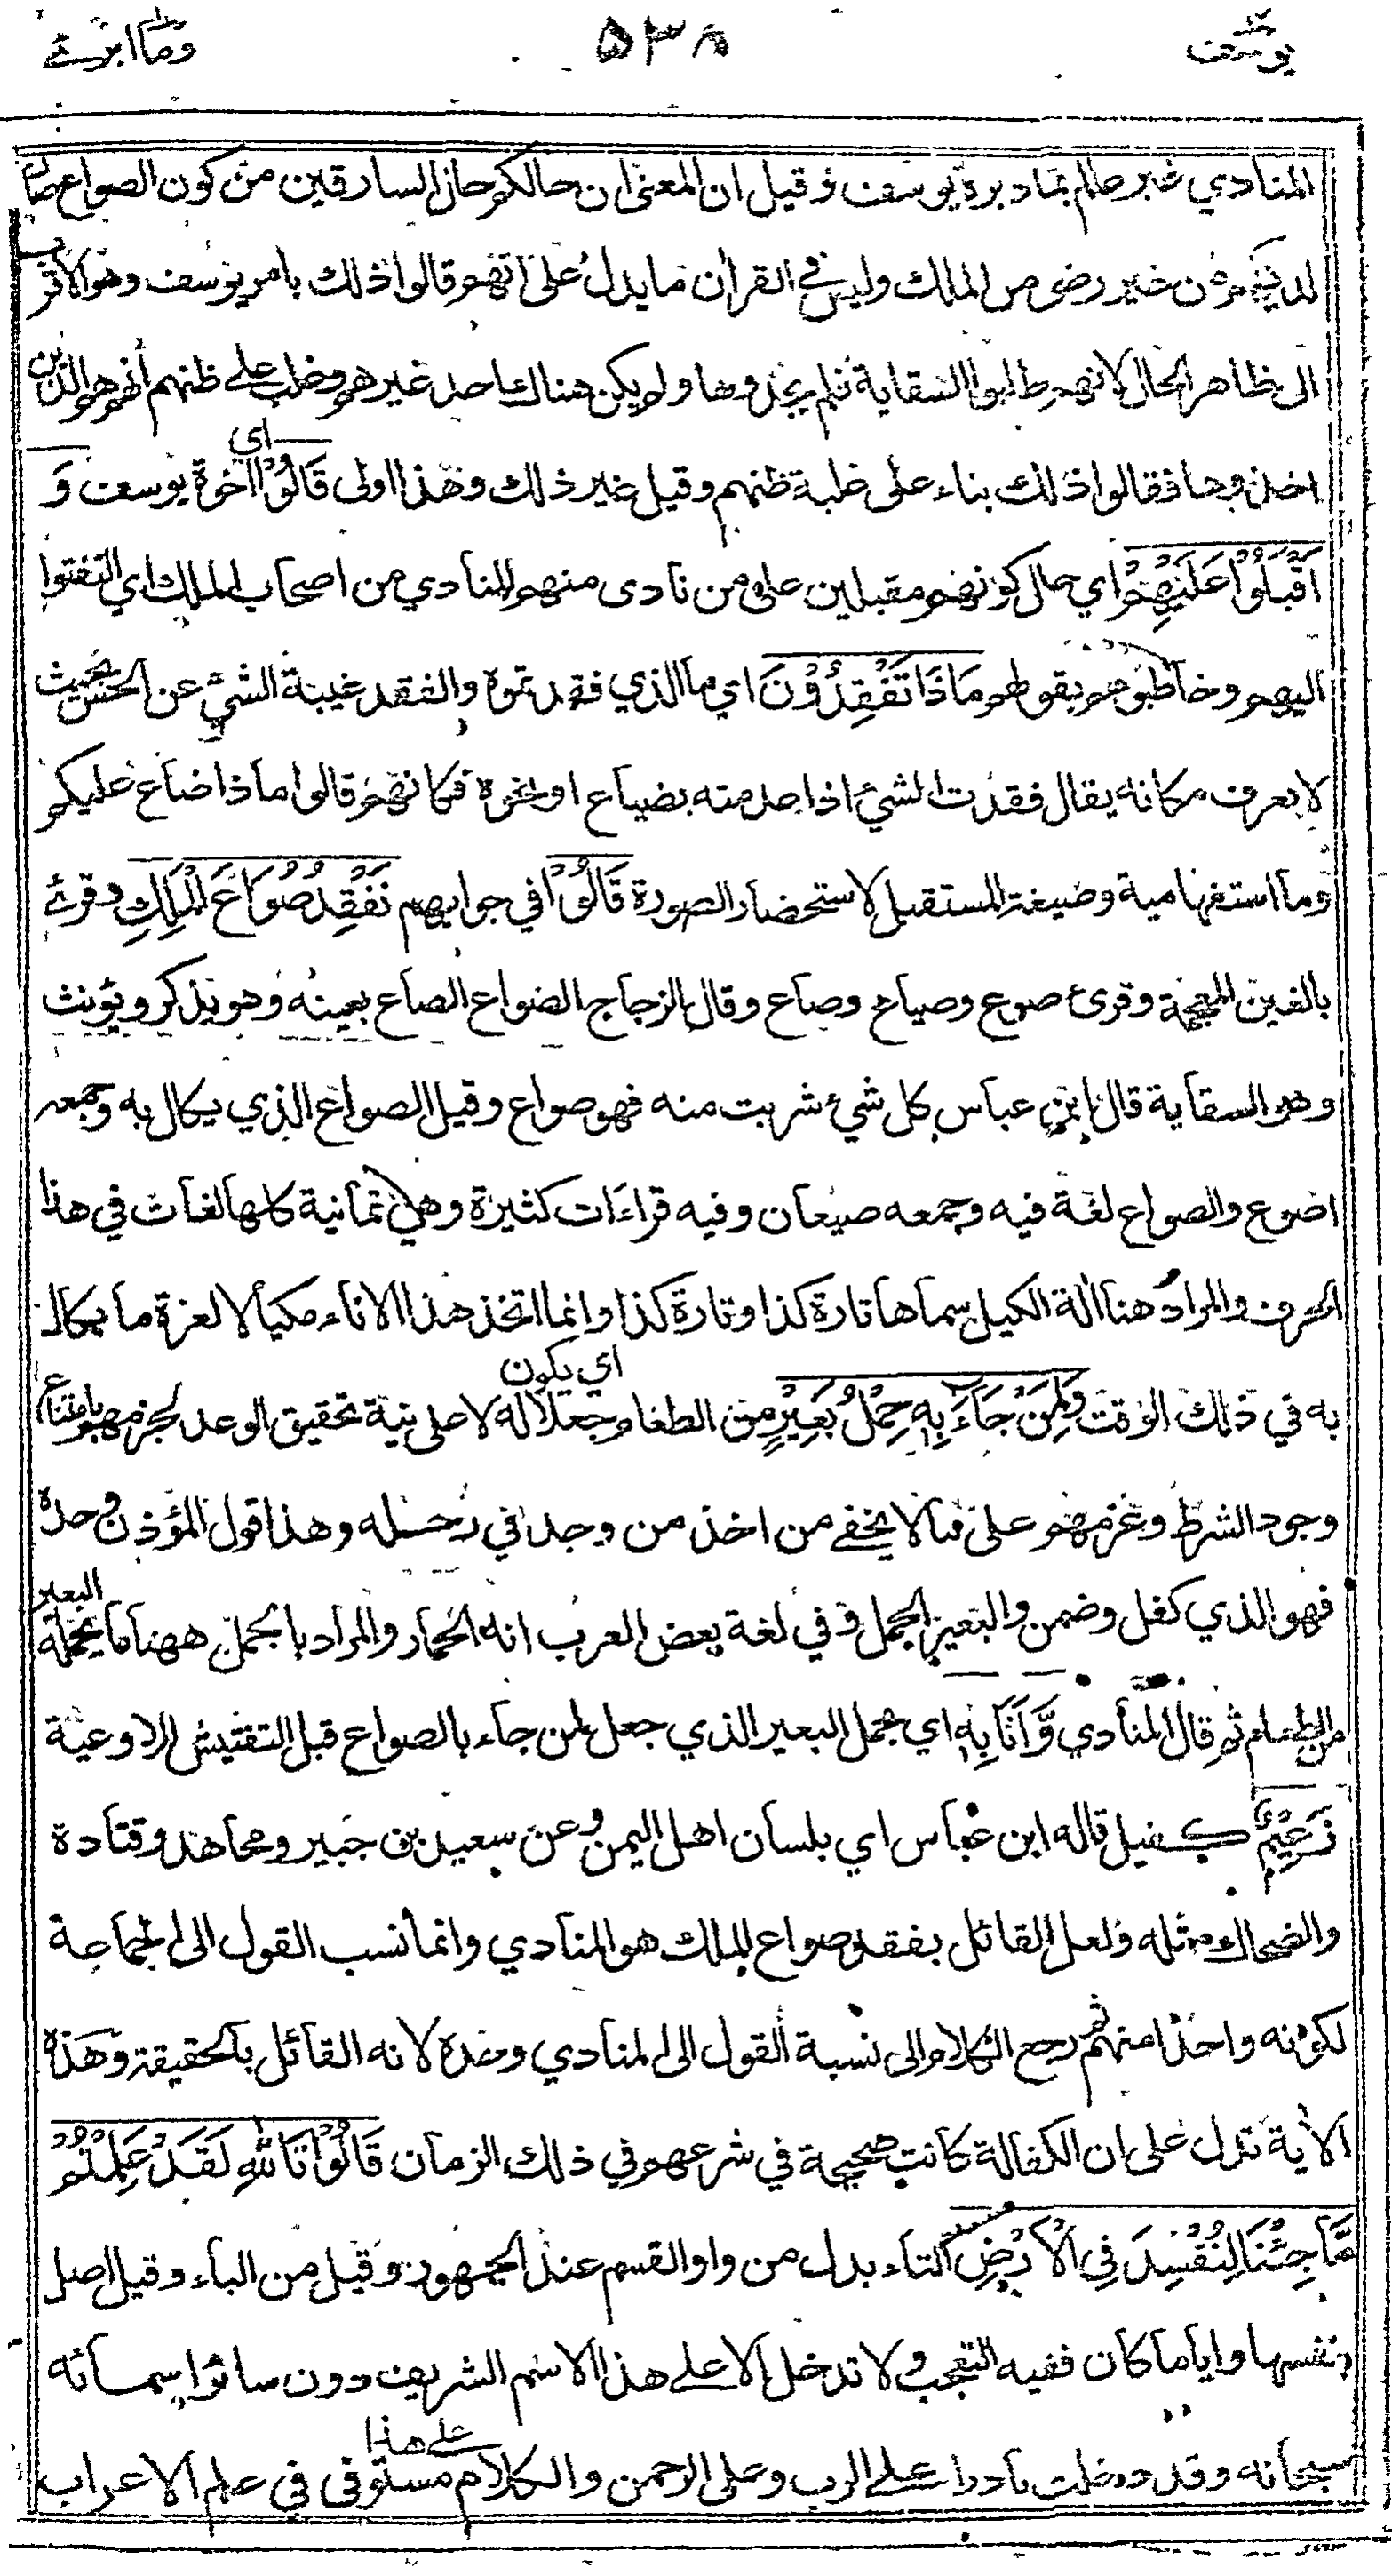 يوسف ٥٣٨ وما ابرئ
المنادي غير عالم بما دبره يوسف وقيل ان المعنى ان حالكم حال السارقين من كون الصواع صار
لديكم من غير رضى من الملك وليس في القران ما يدل على انهم قالوا ذلك بامر يوسف وهو الاقرب
الى ظاهر الحال لانهم طلبوا السقاية فلم يجدوها ولم يكن هناك احد غيرهم وغلب على ظنهم انهم هم الذين
اخذوها فقالوا ذلك بناء على غلبة ظنهم وقيل غير ذلك وهذا اولى قَالُوْا اي اخوة يوسف وَ
اَقْبَلُوْا عَلَيْهِمْ اي حال كونهم مقبلين على من نادى منهم المنادي من اصحاب الملك اي التفتوا
اليهم وخاطبوهم بقولهم مَاذَا تَفْقِدُوْنَ اي ما الذي فقدتموه والفقد غيبة الشيء عن الحس بحيث
لا يعرف مكانه يقال فقدت الشيء اذا عدمته بضياع او نحوه فكانهم قالوا ماذا ضاع عليكم
وما استفهامية وصيغة المستقبل لاستحضار الصورة قَالُوْا في جوابهم نَفْقِدُ صُوَاعَ الْمَلِكِ وقرئ
بالغين المعجمة وقرئ صوع وصياع وصاع وقال الزجاج الصواع الصاع بعينه وهو يذكر ويؤنث
وهو السقاية قال ابن عباس كل شيء شربت منه فهو صواع وقيل الصواع الذي يكال به وجمعه
اصوع والصواع لغة فيه وجمعه صيعان وفيه قراءات كثيرة وهي ثمانية كلها لغات في هذا
الحرف والمراد هنا الة الكيل سماها تارة كذا وتارة كذا وانما اتخذ هذا الاناء مكيالا لعزة ما يكال
به في ذلك الوقت وَلِمَنْ جَاءَ بِهٖ حِمْلُ بَعِيْرٍ من الطعام اي يكون جعلا له لا على نية تحقيق الوعد لجزمهم بامتناع
وجود الشرط وعزمهم على ما لا يخفى من اخذ من وجد في رحله وهذا قول المؤذن وحده
فهو الذي كفل وضمن والبعير الجمل وفي لغة بعض العرب انه الحمار والمراد بالحمل ههنا ما يحمله البعير
من الطعام ثم قال المنادي وَّاَنَا بِهٖ اي بحمل البعير الذي جعل لمن جاء بالصواع قبل التفتيش للاوعية
زَعِيْمٌ كفيل قاله ابن عباس اي بلسان اهل اليمن وعن سعيد بن جبير ومجاهد وقتادة
والضحاك مثله ولعل القائل بفقد صواع الملك هو المنادي وانما نسب القول الى الجماعة
لكونه واحدا منهم ثم رجع الكلام الى نسبة القول الى المنادي وحده لانه القائل بالحقيقة وهذه
الاية تدل على ان الكفالة كانت صحيحة في شرعهم في ذلك الزمان قَالُوْا تَاللّٰهِ لَقَدْ عَلِمْتُمْ
مَّا جِئْنَا لِنُفْسِدَ فِى الْاَرْضِ التاء بدل من واو القسم عند الجمهور وقيل من الباء وقيل اصل
بنفسها وايا ما كان ففيه التعجب ولا تدخل الا على هذا الاسم الشريف دون سائر اسمائه
سبحانه وقد دخلت نادرا على الرب وعلى الرحمن والكلام على هذا مستوفى في علم الاعراب